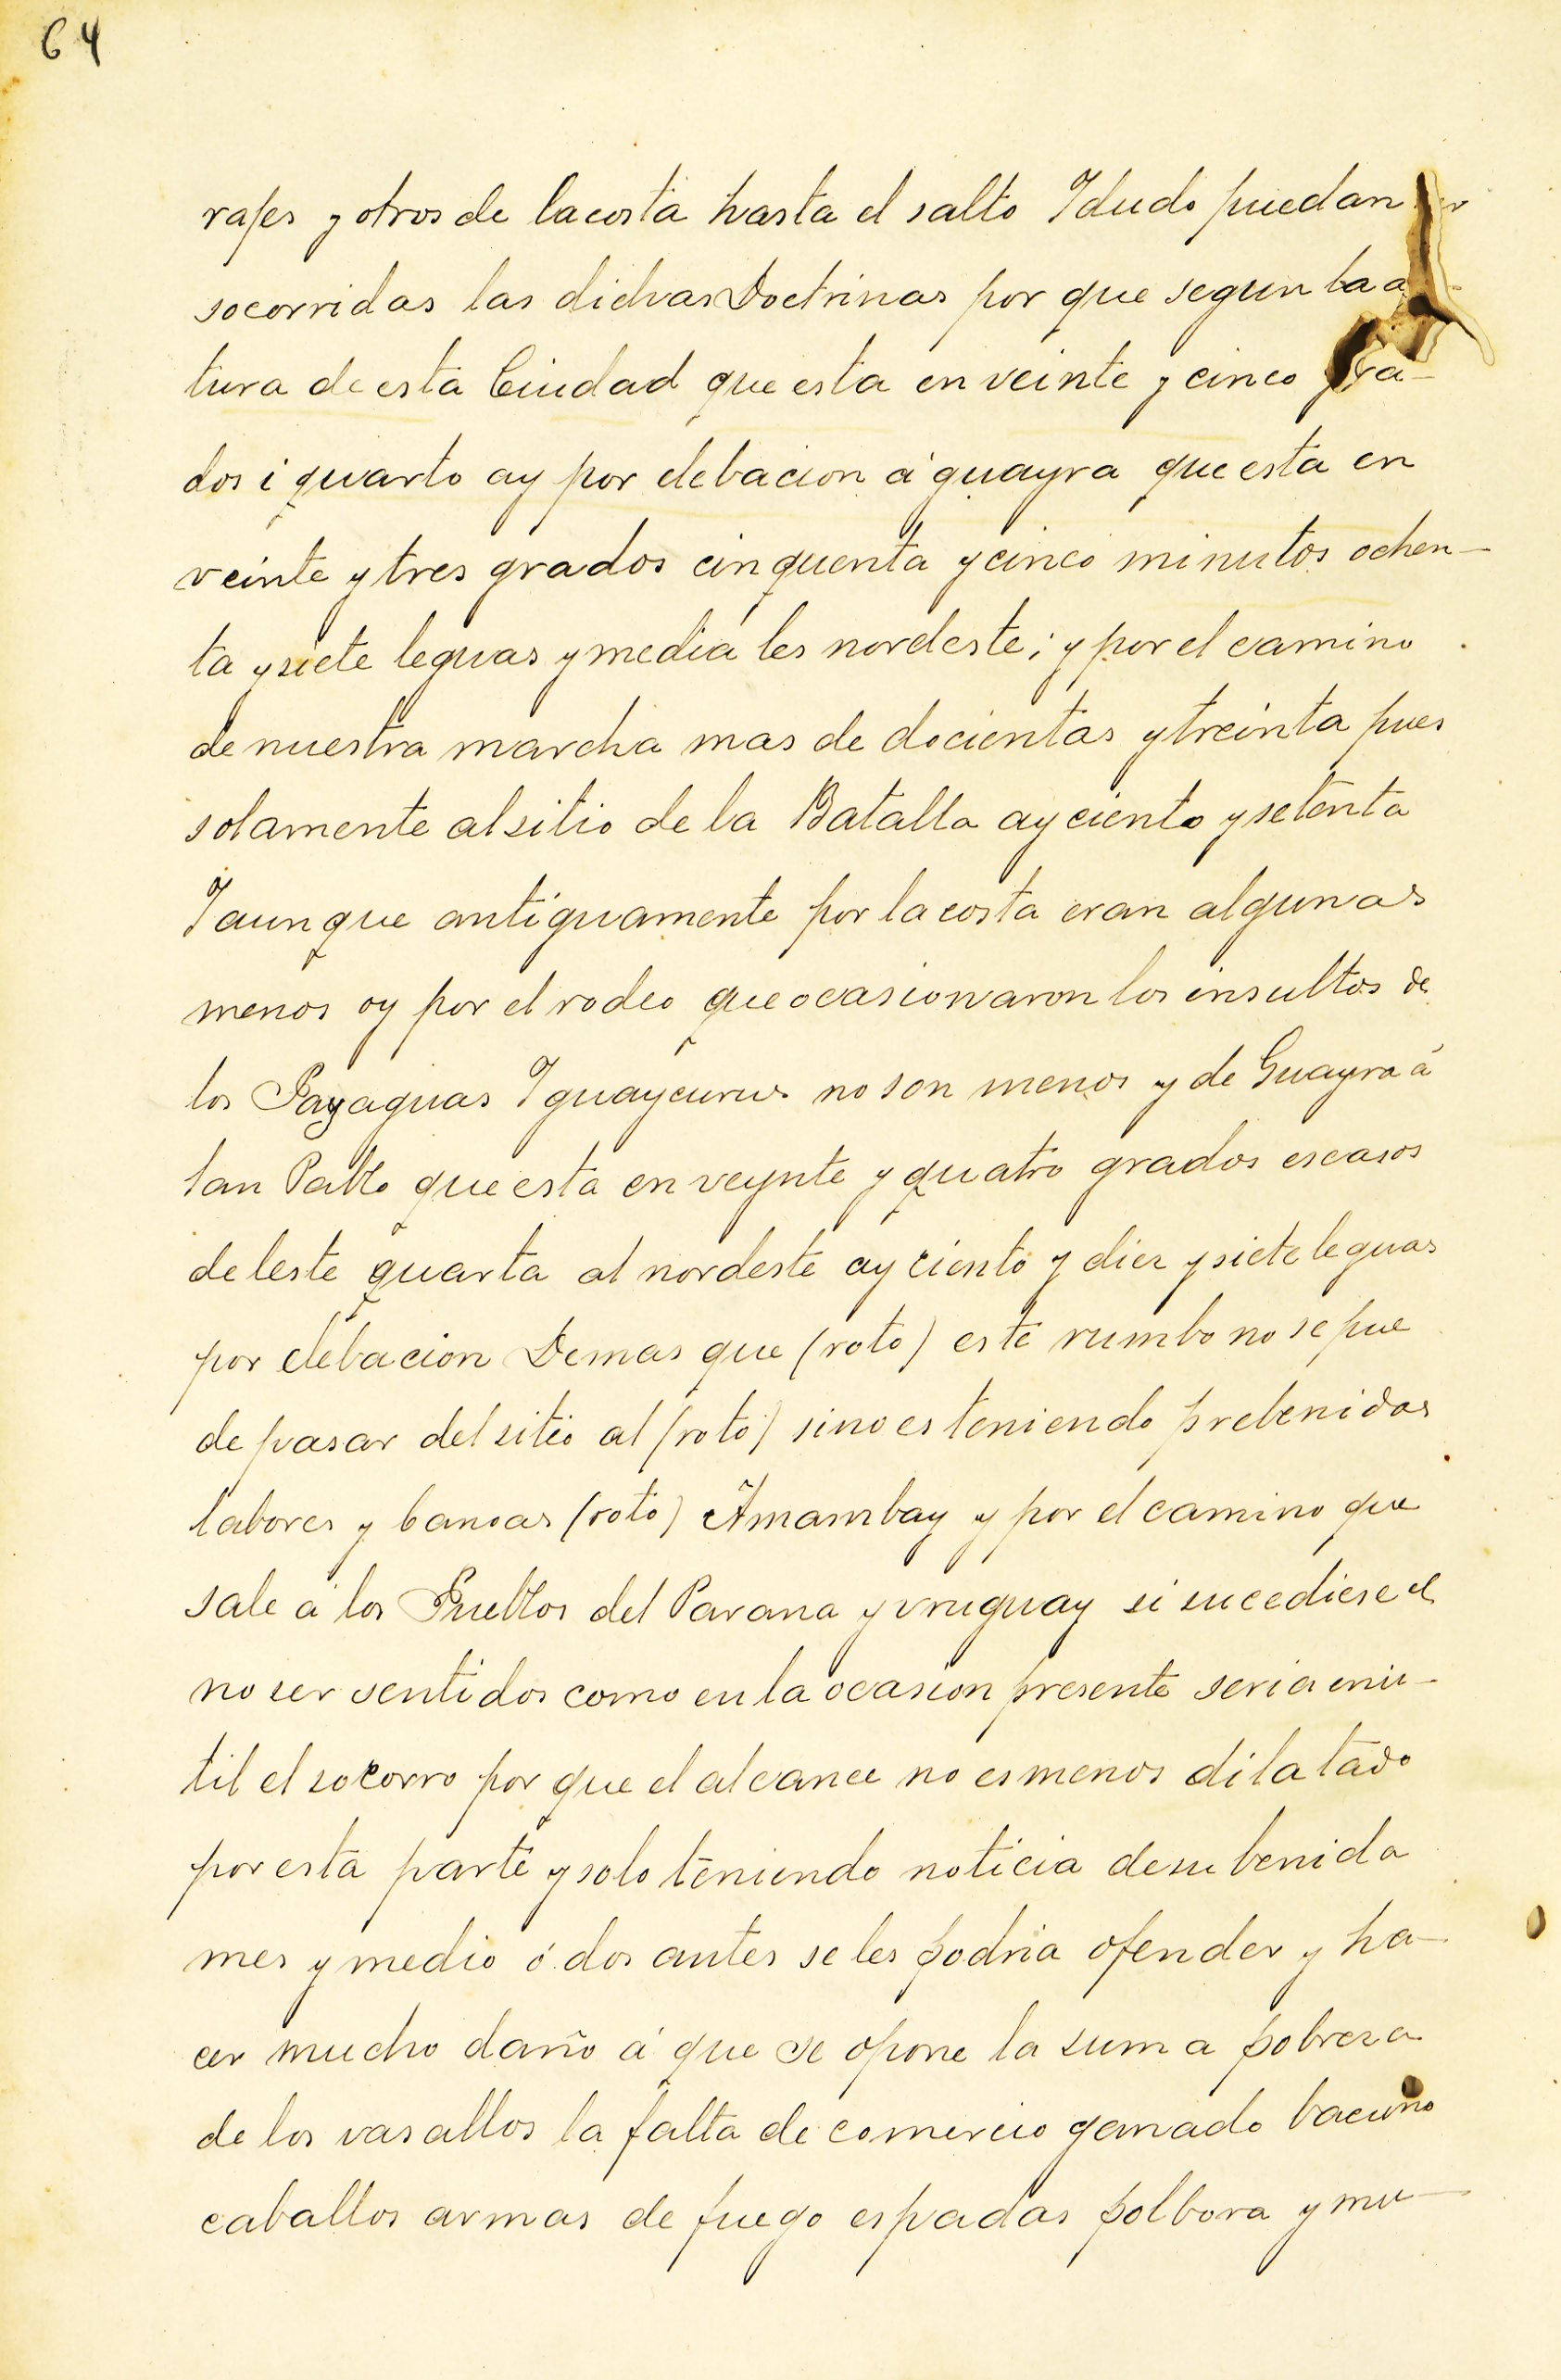 64
rajes y otros de la costa hasta el salto Y dudo puedan
socorridas las dichas Doctrinas por que segun la a
tura de esta Ciudad que esta en veinte y cinco gra-
dos i quarto ay por elebacion á guayra que esta en
veinte y tres grados cinquenta y cinco minutos ochen-
ta y siete leguas y media les nordeste; y por el camino
de nuestra marcha mas de docientas y treinta pues
solamente al sitio de la Batalla ay ciento y setenta
Y aunque antiguamente por la costa eran algunas
menos oy por el rodeo que ocasionaron los insultos de
los Payaguas Y guaycurus no son menos y de Guayra á
san Pablo que esta en veynte y quatro grados escasos
deleste quarta al nordeste ay ciento y diez y siete leguas
por elebacion Demas que (roto) este rumbo no se pue
de pasar del sitio al (roto) sino es teniendo prebenidas
labores y banoas (roto) Amambay y por el camino que
sale a los Pueblos del Parana y uruguay si sucediese el
no ser sentidos como en la ocasion presente seria inu-
til el socorro por que el alcance no es menos dilatado
por esta parte y solo teniendo noticia de su benida
mes y medio ó dos antes se les podria ofender y ha-
cer mucho daño á que se opone la suma pobreza
de los vasallos la falta de comercio ganado bacuno
caballos armas de fuego espadas polbora y mu-